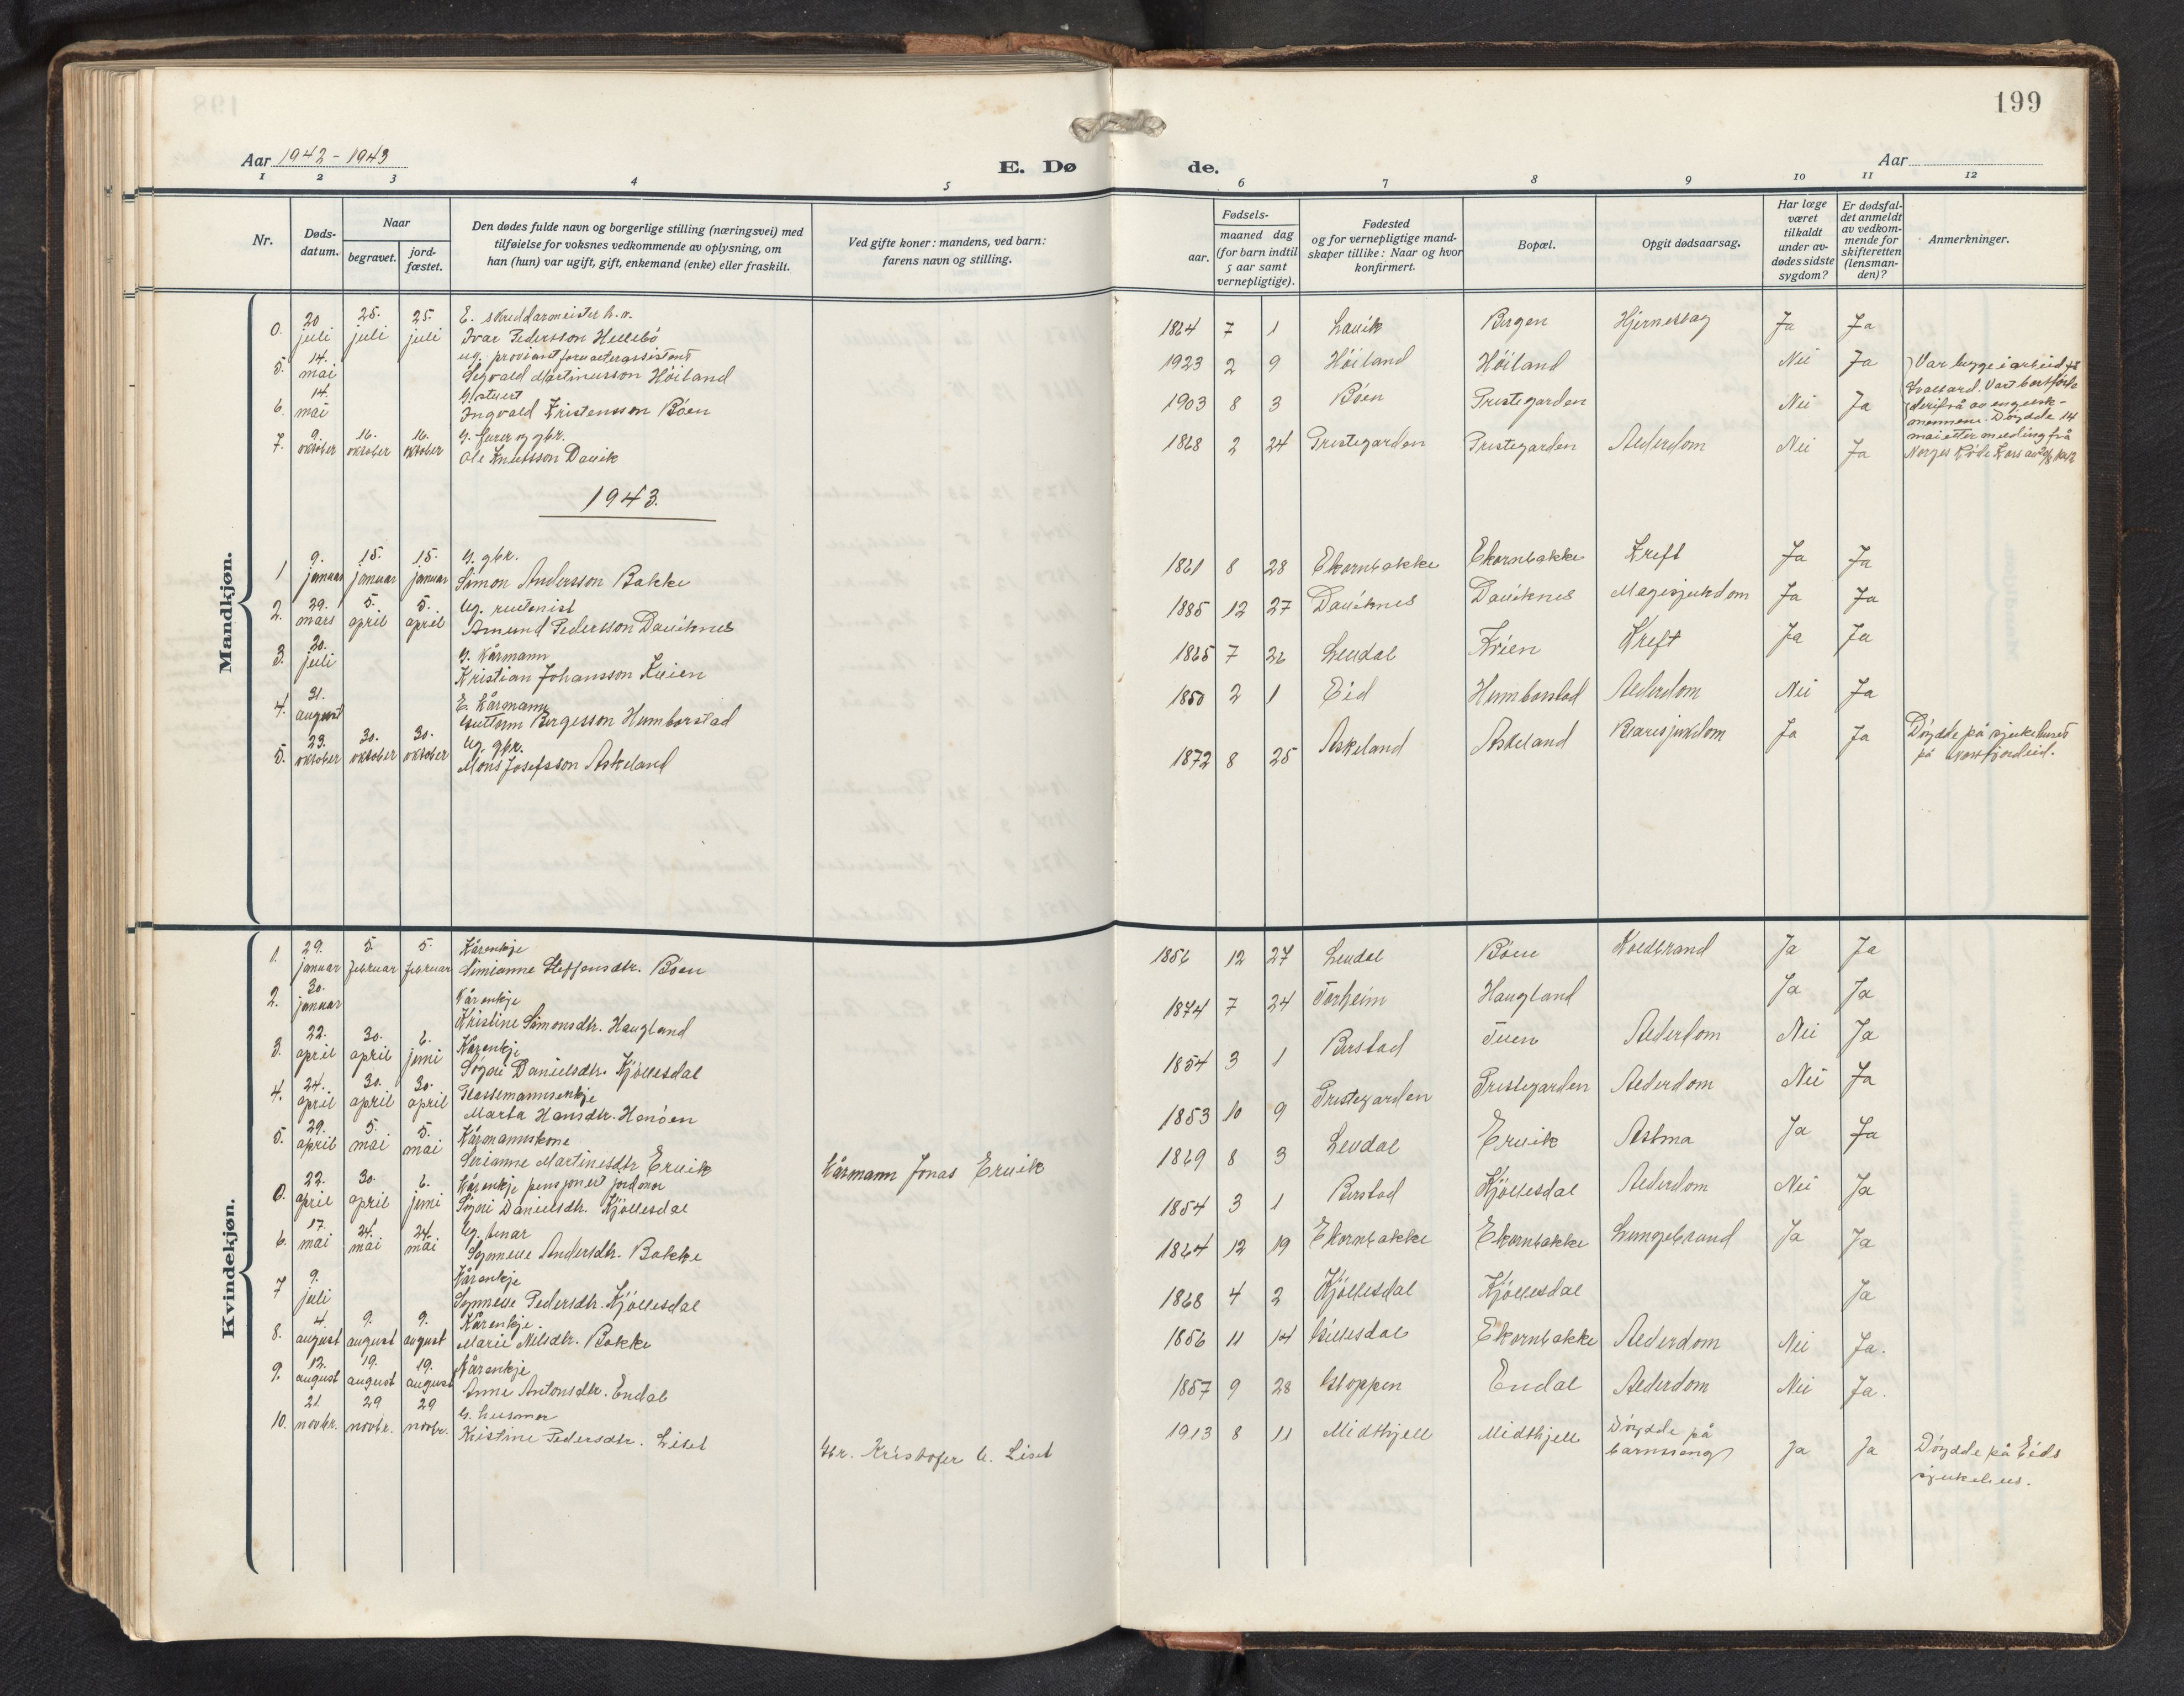 199
Aar 1942 - 1943
E. Dø
de.
Aar
1 2 3 4 5 6 7 8 9 10 11 12
Nr.
Døds-
datum.
Naar
begravet.
jord-
fæstet.
Den dødes fulde navn og borgerlige stilling (næringsvei) med
tilføielse for voksnes vedkommende av oplysning, om
han (hun) var ugift, gift, enkemand (enke) eller fraskilt.
Ved gifte koner: mandens, ved barn:
farens navn og stilling.
Fødsels-
aar.
maaned dag
(for barn indtil
5 aar samt
vernepligtige).
Fødested
og for vernepligtige mand-
skaper tillike: Naar og hvor
konfirmert.
Bopæl.
Opgit dødsaarsag.
Har læge
været
tilkaldt
under av-
dødes sidste
sygdom?
Er dødsfal-
det anmeldt
av vedkom-
mende for
skifteretten
(lensman-
den)?
Anmerkninger.
Mandkjøn.
0. 20 juli 25. juli 25. juli E. skreddarmeister
Ivar Pedersson Hellebö 1864 7 1 Lavik Bergen Hjerneslag Ja Ja
5. 14. mai ug. proviantforvalterassistent
Sigvald Martinusson Höiland 1923 2 9 Höiland Höiland Nei Ja
6. 14. mai G. stuert
Ingvald Kristensson Böen 1903 8 3 Böen Prestegarden Nei Ja
Var begge i arbeid på
Svalbard. Vart bortförte
derifrå av engelsk-
mennene. Döydde 14
mai etter melding frå
Norges Röde Kors
7. 9. oktober 16. oktober 16. oktober G. furer og gbr.
Ole Knutsson Davik 1868 2 24 Prestegarden Prestegarden Alderdom Nei Ja
1943.
1 9. januar 15. januar 15. januar G. gbr.
Simon Andersson Bakke 1861 8 28 Ekornbakke Ekornbakke Kreft Ja Ja
2. 29. mars 5. april 5. april Ug. rentenist
Amund Pedersson Daviknes 1885 12 27 Daviknes Daviknes Magesjukdom Ja Ja
3. 30. juli G. kårmann
Kristian Johansson Kvien 1865 7 26 Levdal Kvien Kreft Ja Ja
4. 31. august E. kårmann
Guttorm Börgesson Humborstad 1850 2 1 Eid Humborstad Alderdom Nei Ja
5. 23. oktober 30. oktober 30. oktober Ug. gbr.
Mons Josefsson Askeland 1872 8 25 Askeland Askeland Blæresjukdom Ja Ja Döydde på sjukehuset
på Nordfjordeid.
Kvindekjøn.
1. 29. januar 5. februar 5. februar Kårenkje
Simianne Steffensdtr. Böen 1856 12 27 Levdal Böen Koldbrand Ja Ja
2. 30. januar Kårenkje
Kristine Simonsdtr. Haugland 1874 7 24 Torheim Haugland Ja Ja
3. 22. april 30. april 6. juni Kårenkje
Sögni Danielsdtr. Kjöllesdal 1854 3 1 Berstad Tuen Alderdom Nei Ja
4. 24. april 30. april 30. april Plassemannsenkje
Marta Hansdtr. Henöen 1853 10 9 Prestegarden Prestegarden Alderdom Nei Ja
5. 29. april 5. mai 5. mai Kårmannskone
Serianne Martinesdtr Ervik Kårmann Jonas Ervik 1869 8 3 Levdal Ervik Astma Ja Ja
0. 22. april 30. april 6. juni Kårenkje pensjonert jordmor
Sögni Danielsdtr. Kjöllesdal 1854 3 1 Berstad Kjöllesdal Alderdom Nei Ja
6. 17. mai 24. mai 24. mai Ug. tenar
Synneve Andersdtr. Bakke 1864 12 19 Ekornbakke Ekornbakke Lungebrand Ja Ja
7 9. juli Kårenkje
Synneve Pedersdtr. Kjöllesdal 1868 4 2 Kjöllesdal Kjöllesdal Ja
8. 4. august 9. august 9. august Kårenkje.
Marie Nilsdtr. Bakke 1856 11 14 Ekornbakke Alderdom Nei Ja.
9. 12. august 19. august 19. august Kårenkje
Anne Antonsdtr. Endal 1857 9 28 Gloppen Endal Alderdom Nei Ja.
10. 21 novbr. 29 novbr. 29 novbr. G. husmor
Kristine Pedersdtr. Liset Gbr. Kristofer G. Liset 1913 8 11 Midthjell Midthjell Döydde på
barnseng Ja Ja Döydde på Eids
sjukehus.